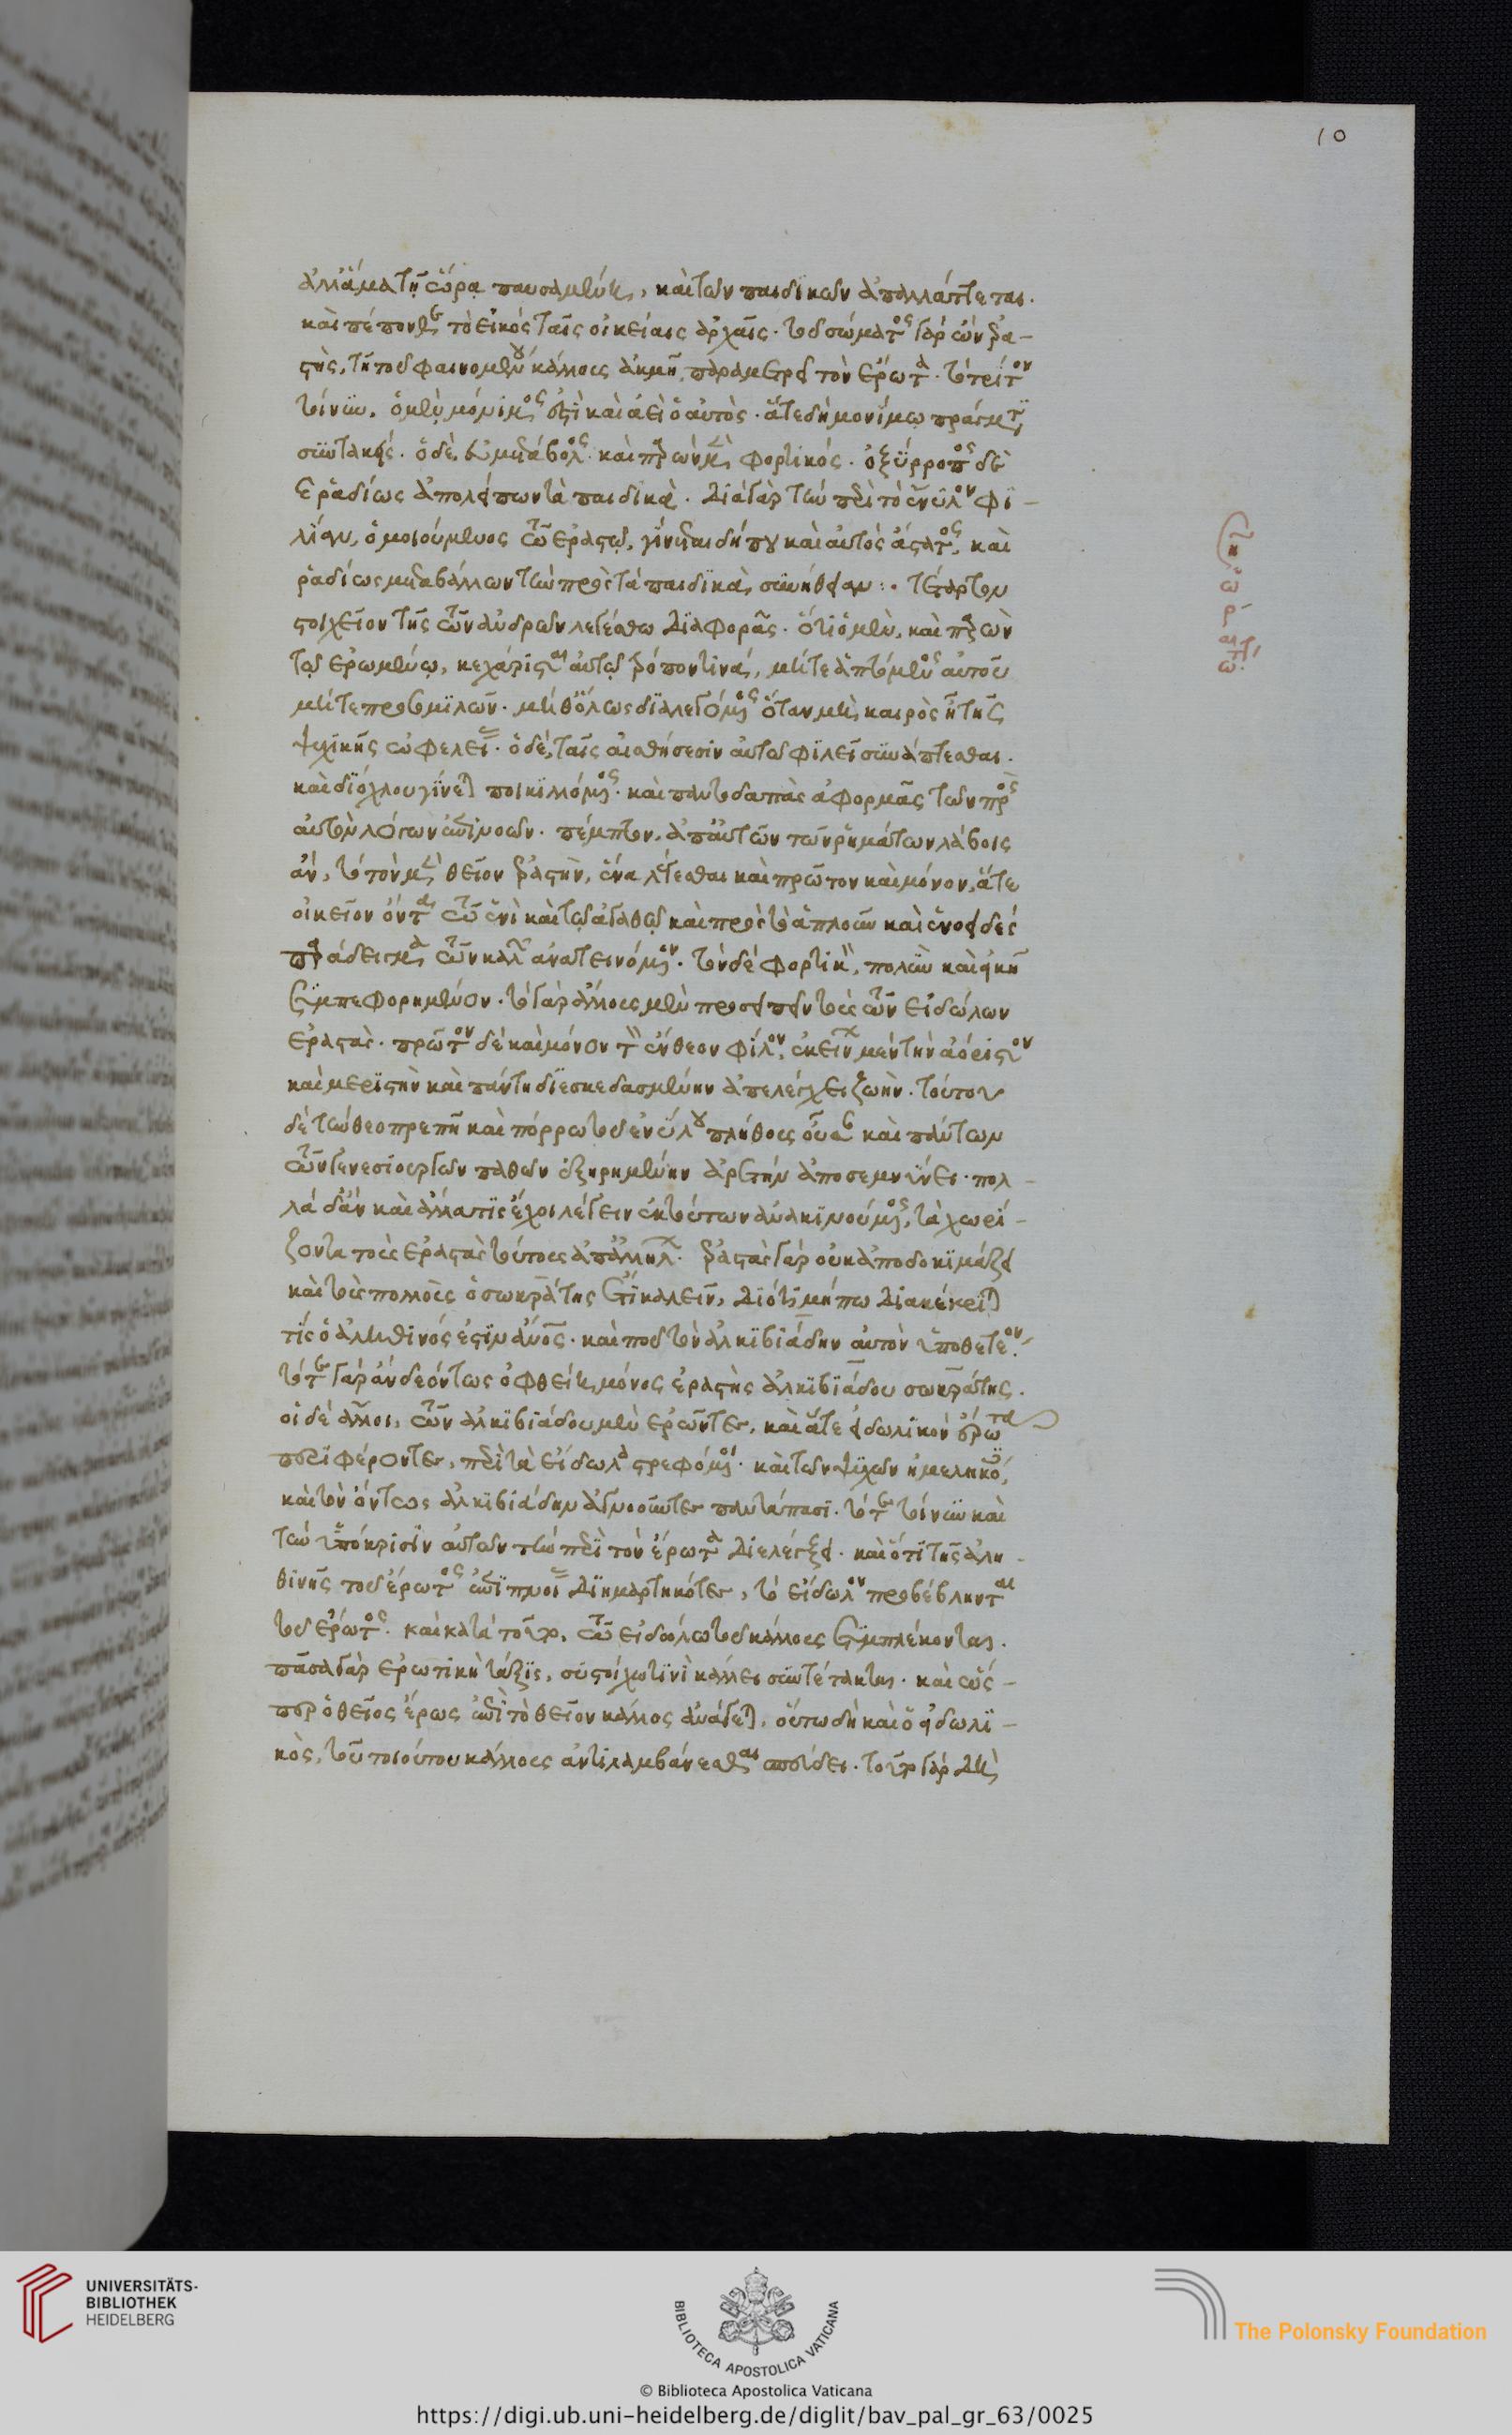 10
ἀλλ' ἅμα τῇ ὥρᾳ παυσαμένῃ, καὶ τῶν παιδικῶν ἀπαλλάττεται.
καὶ πέπονθε τὸ εἰκὸς ταῖς οἰκείαις ἀρχαῖς. τοῦ σώματος γὰρ ὢν ἐρα-
στὴς, τῇ τοῦ φαινομένου κάλλους ἀκμῇ, παραμετρεῖ τὸν ἔρωτα. τὸ τρίτον
τοίνυν, ὁ μὲν μόνιμος ἐστὶ καὶ ἀεὶ ὁ αὐτὸς. ἅτε δὴ μονίμῳ πράγματι
συντακείς. ὁ δὲ, εὐμετάβολος. καὶ
φορτικός. ὀξύρροπος δὲ
ῥᾳδίως ἀπολείπων τὰ παιδικὰ. διὰ γὰρ τὴν περὶ τὸ ἔνυλον φι-
λίαν, ὁμοιούμενος τῶ ἐραστῷ, γίνεται δήπου καὶ αὐτὸς ἄστατος, καὶ
ῥᾳδίως μεταβάλλων τὴν πρὸς τὰ παιδικὰ συνήθειαν:. τέταρτον
στοιχεῖον τῆς τῶν ἀνδρῶν λεγέσθω διαφορᾶς. ὅτι ὁ μὲν, καὶ παρὼν
τῷ ἐρωμένῳ, κεχώρισται αὐτοῦ τρόπον τινά, μήτε ἁπτόμενος αὐτοῦ
μήτε προσομιλῶν. μήθ' ὅλως διαλεγόμενος ὅταν μὴ καιρὸς ᾖ τῆς
ψυχικῆς ὠφελείας. ὁ δέ, ταῖς αἰσθήσεσιν αὐτοῦ φιλεῖ συνάπτεσθαι.
καὶ δι' ὄχλου γίνεται ποικιλλόμενος. καὶ παντοδαπὰς ἀφορμὰς τῶν πρὸς
αὐτὸν λόγων ἐπινοῶν. πέμπτον, ἀπ' αὐτῶν τῶν ῥημάτων λάβοις
ἂν, τὸ τὸν μὲν θεῖον ἐραστὴν, ἕνα λέγεσθαι καὶ πρῶτον καὶ μόνον, ἅτε
οἰκεῖον ὄντα τῶ ἑνὶ καὶ τῷ ἀγαθῷ καὶ πρὸς τὸ ἁπλοῦν καὶ ἑνοειδὲς
παράδειγμα τῶν καλῶν ἀνατεινόμενον. τὸν δὲ φορτικὸν, πολὺν καὶ εἰκῇ
συμπεφορημένον. τὸ γὰρ ἄλλους μὲν προσειπεῖν τοὺς τῶν εἰδώλων
ἐραστὰς. πρῶτον δὲ καὶ μόνον τὸν ἔνθεον φίλον, ἐκείνων μὲν τὴν ἀόριστον
καὶ μεριστὴν καὶ πάντη διεσκεδασμένην ἀπελέγχει ζωὴν. τούτου
δὲ τὴν θεοπρεπῆ καὶ πόρρω τοῦ ἐνύλου πλήθους οὖσαν καὶ πάντων
τῶν γενεσιουργῶν παθῶν ἐξῃρημένην ἀρετὴν ἀποσεμνύνει. πολ-
λὰ δ' ἂν καὶ ἄλλα τις ἔχοι λέγειν ἐκ τούτων ἀνακινούμενος, τὰ χωρί-
ζοντα τοὺς ἐραστὰς τούτους ἀπ' ἀλλήλων. ἐραστὰς γὰρ οὐκ ἀποδοκιμάζει
καὶ τοὺς πολλοὺς ὁ σωκράτης ἔτι καλεῖν, διότι μήπω διακέκριται
τίς ὁ ἀληθινός ἐστιν ἄνθρωπος. καὶ ποῦ τὸν ἀλκιβιάδην αὐτὸν ὑποθετέον.
τότε γὰρ ἂν δεόντως ὀφθείη μόνος ἐραστὴς ἀλκιβιάδου σωκράτης.
οἱ δὲ ἄλλοι, τῶν ἀλκιβιάδου μὲν ἐρῶντες, καὶ ἅτε εἰδωλικὸν ἔρωτα
περιφέροντες, περὶ τὰ εἴδωλα στρεφόμενοι. καὶ τῶν ψυχῶν ἠμεληκότες,
καὶ τὸν ὄντως ἀλκιβιάδην ἀγνοοῦντες παντάπασι. τότε τοίνυν καὶ
τὴν ὑπόκρισιν αὐτῶν τὴν περὶ τὸν ἔρωτα διελέγξει. καὶ ὅτι τῆς ἀλη-
θινῆς τοῦ ἔρωτος ἐπιπνοίας διημαρτηκότες, τὸ εἴδωλον προβέβληνται
τοῦ ἔρωτος. καὶ κατὰ τοῦτο, τῶ εἰδώλω τοῦ κάλλους συμπλέκονται.
πᾶσα γὰρ ἐρωτικὴ τάξις, συστοίχω τινὶ κάλλει συντέτακται. καὶ ὥς-
περ ὁ θεῖος ἔρως ἐπὶ τὸ θεῖον κάλλος ἀνάγεται, οὕτω δὴ καὶ ὁ εἰδωλι-
κὸς, τοῦ τοιούτου κάλλους ἀντιλαμβάνεσθαι σπεύδει. τοῦτο γὰρ δὴ
UNIVERSITÄTS-
BIBLIOTHEK
HEIDELBERG
BIBLIOTECA APOSTOLICA VATICANA
The Polonsky Foundation
© Biblioteca Apostolica Vaticana
https://digi.ub.uni-heidelberg.de/diglit/bav_pal_gr_63/0025